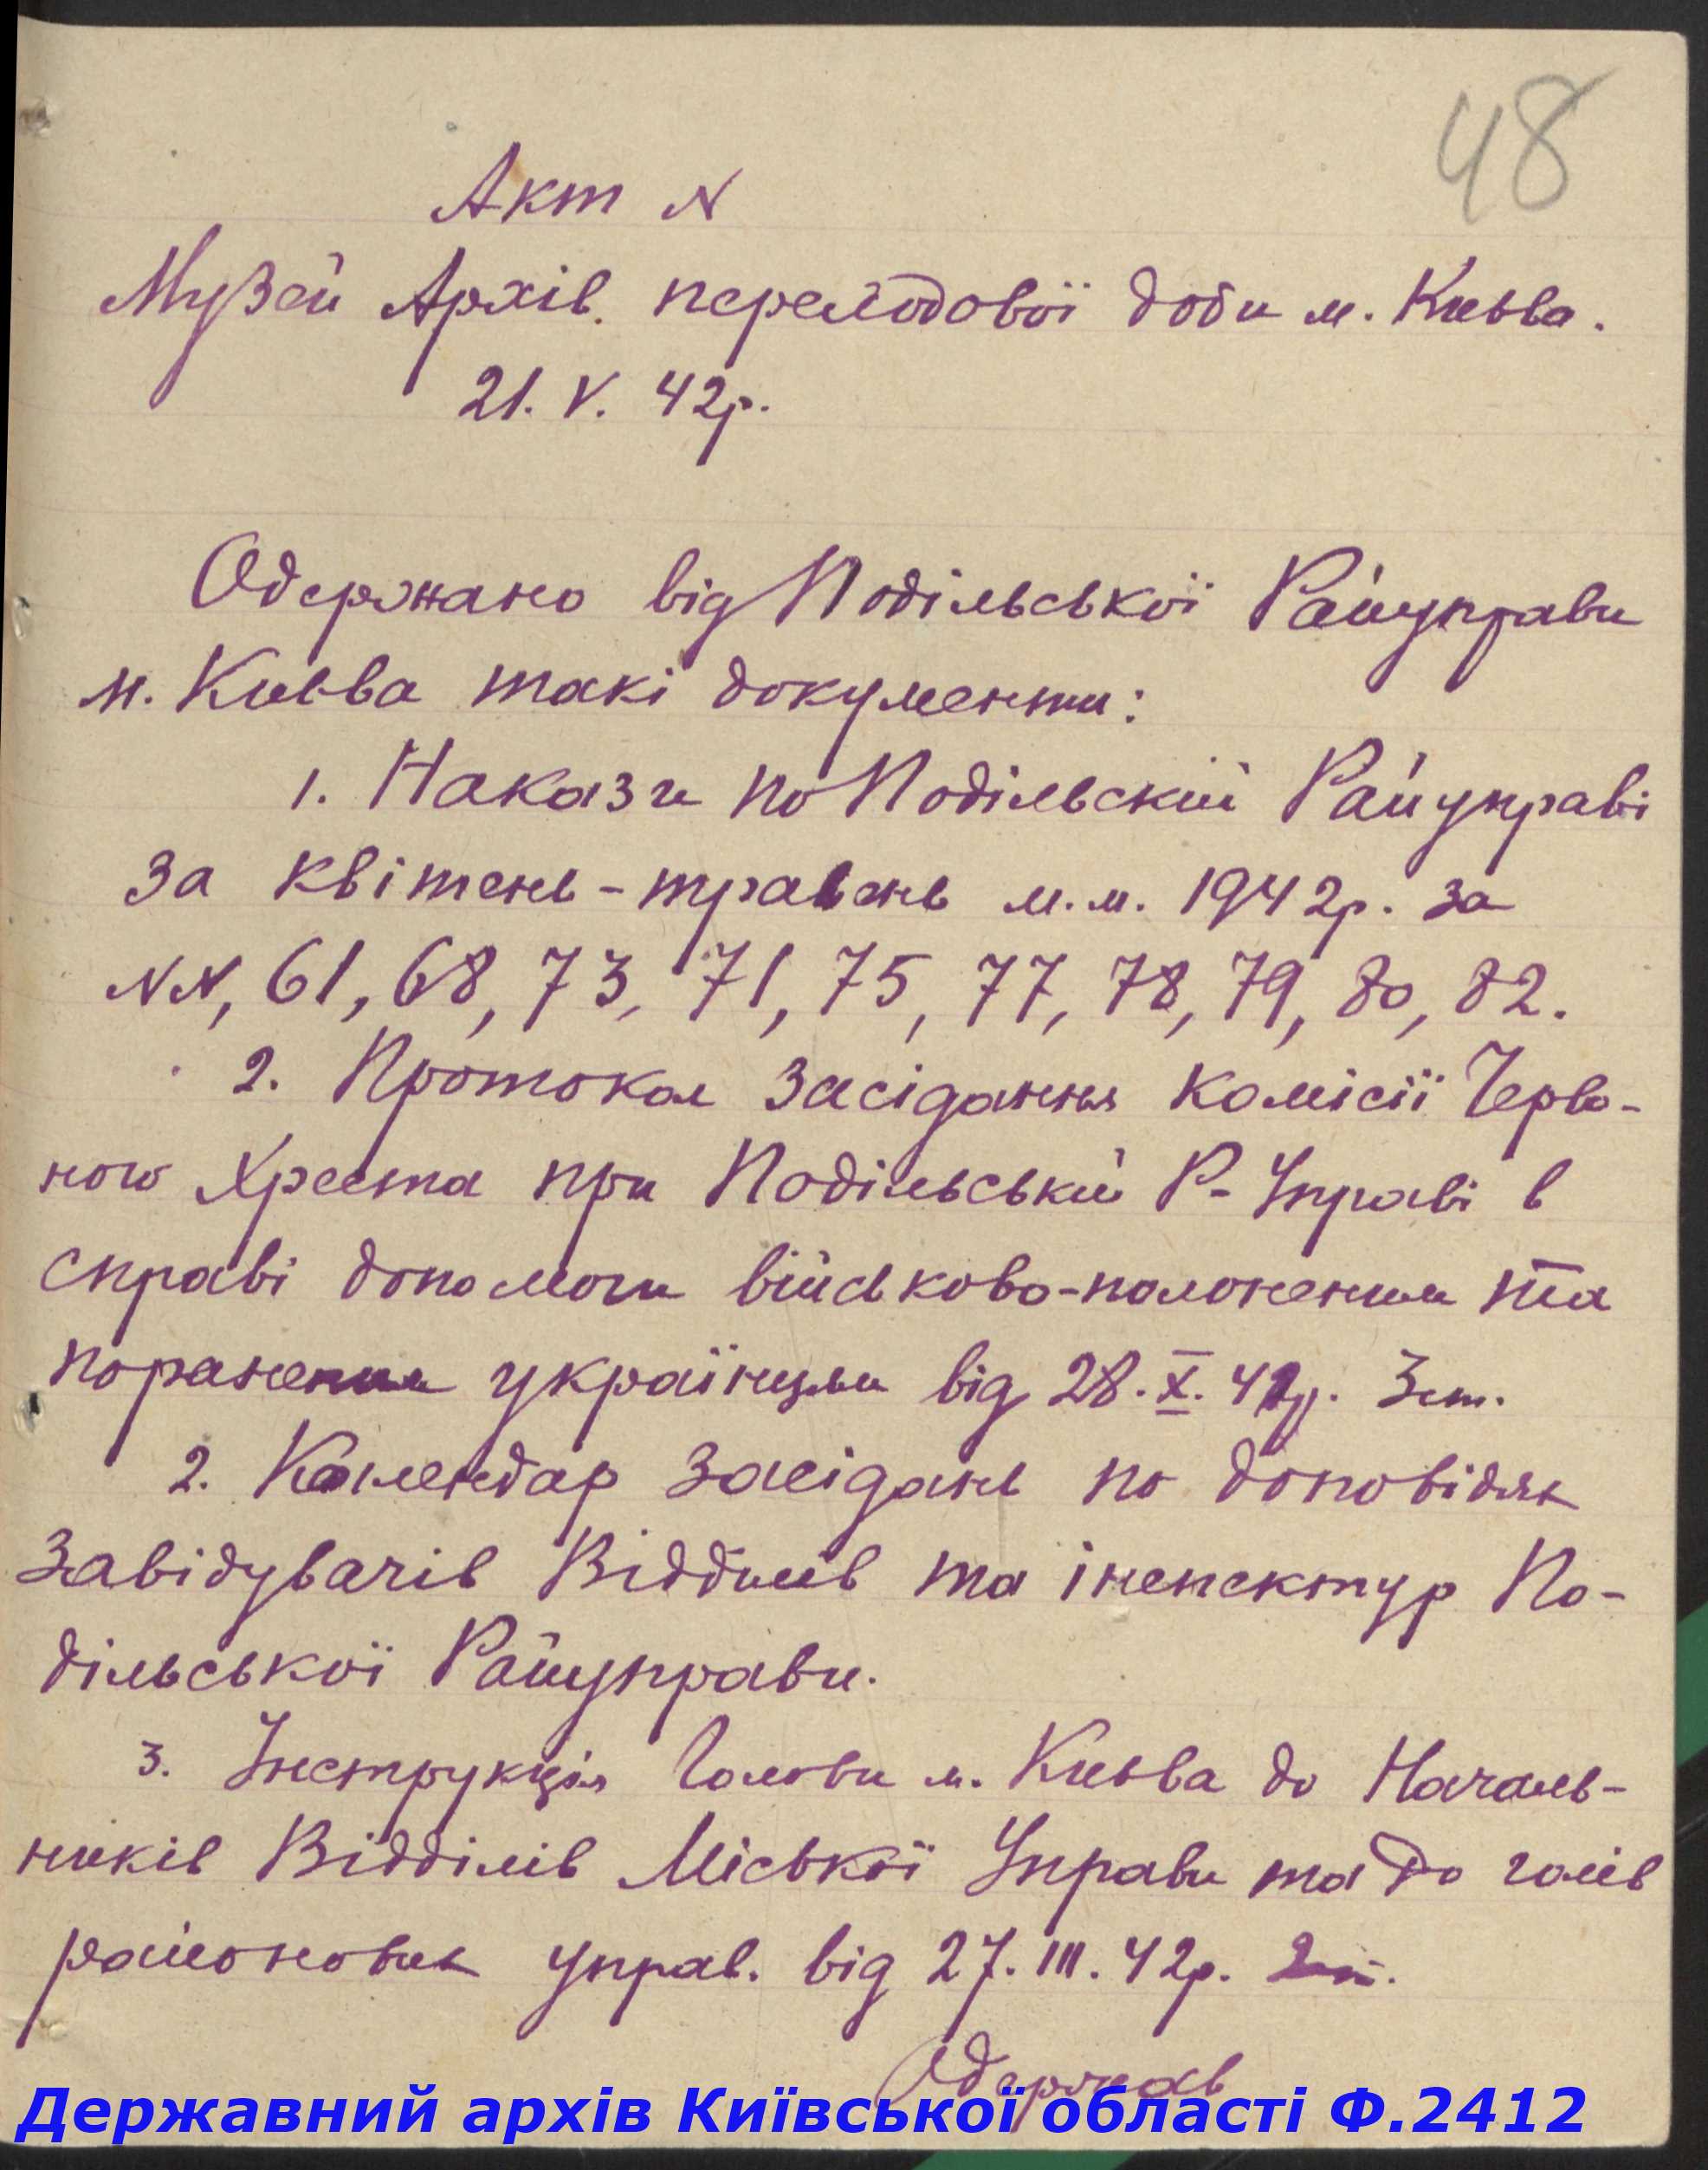 48
Акт N
Музей Архів. переходової доби м. Києва.
21. V. 42р.
Одержано від Подільської Райуправи
м. Києва такі документи:
1. Накази по Подільскій Райуправі
за квітень-травень м.м. 1942р. за
NN, 61, 68, 73, 71, 75, 77, 78, 79, 80, 82.
2. Протокол засідання комісії Черво-
ного Хреста при Подільській Р-Управі в
справі допомоги військово-полоненим та
пораненим українцям від 28.X. 41р. 3 шт.
2. Календар засідань по доповідях
завідувачів Відділів та інспектур По-
дільської Райуправи.
3. Інструкція Голови м. Києва до Началь-
ників Відділів Міської Управи та до голів
районових управ. від 27. III. 42р.
Одержав
Державний архів Київської області Ф.2412